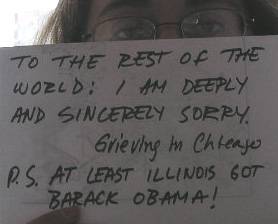 TO THE REST OF THE
WORLD: I AM DEEPLY
AND SINCERELY SORRY.
Grieving in Chicago
P.S. AT LEAST ILLINOIS GOT
BARACK OBAMA!